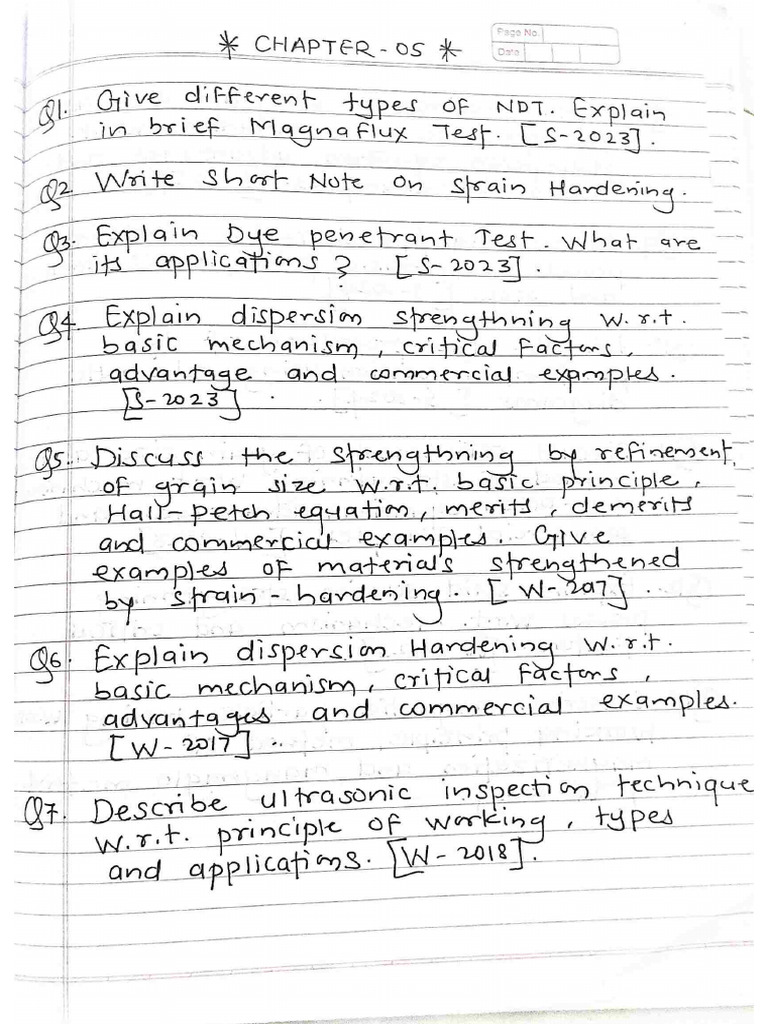 * CHAPTER - 05 *
Page No.
Date
Q1. Give different types of NDT. Explain
in brief Magnaflux Test. [S-2023].
Q2 Write Short Note on Strain Hardening.
Q3. Explain Dye penetrant Test. What are
its applications? [S-2023].
Q4 Explain dispersion strengthning w.r.t.
basic mechanism, critical factors,
advantage and commercial examples.
[S-2023].
Q5. Discuss the strengthning by refinement
of grain size w.r.t. basic principle,
Hall-Petch equation, merits, demerits
and commercial examples. Give
examples of materials strengthened
by strain-hardening. [W-2017].
Q6. Explain dispersion Hardening w.r.t.
basic mechanism, critical factors,
advantages and commercial examples.
[W-2017].
Q7. Describe ultrasonic inspection technique
w.r.t. principle of working, types
and applications. [W-2018].